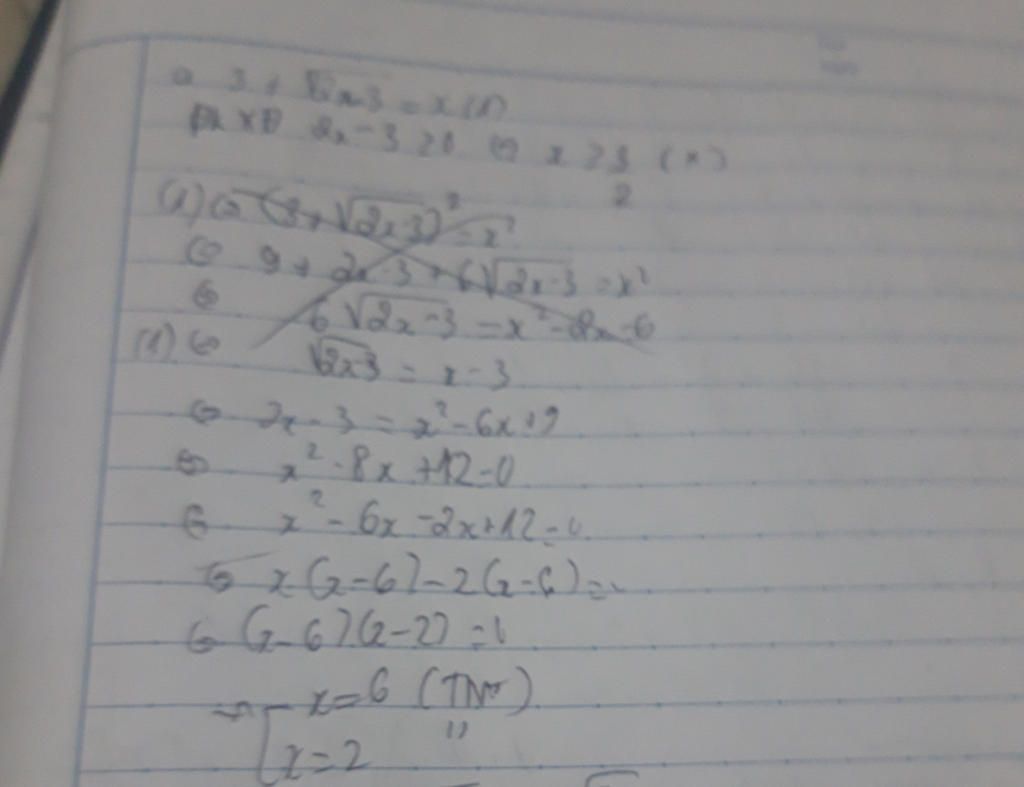 a 3 + √2x-3 = x (1)
ĐKXĐ 2x - 3 ≥ 0 ⇔ x ≥ 3/2 (*)
(1) ⇔ (3 + √2x-3)² = x²
⇔ 9 + 2x - 3 + 6√2x-3 = x²
⇔ 6√2x-3 = x² - 2x - 6
(1) ⇔ √2x-3 = x - 3
⇔ 2x - 3 = x² - 6x + 9
⇔ x² - 8x + 12 = 0
⇔ x² - 6x - 2x + 12 = 0
⇔ x(x-6) - 2(x-6) = 0
⇔ (x-6)(x-2) = 0
⇔ [ x = 6 (TM)
x = 2 "